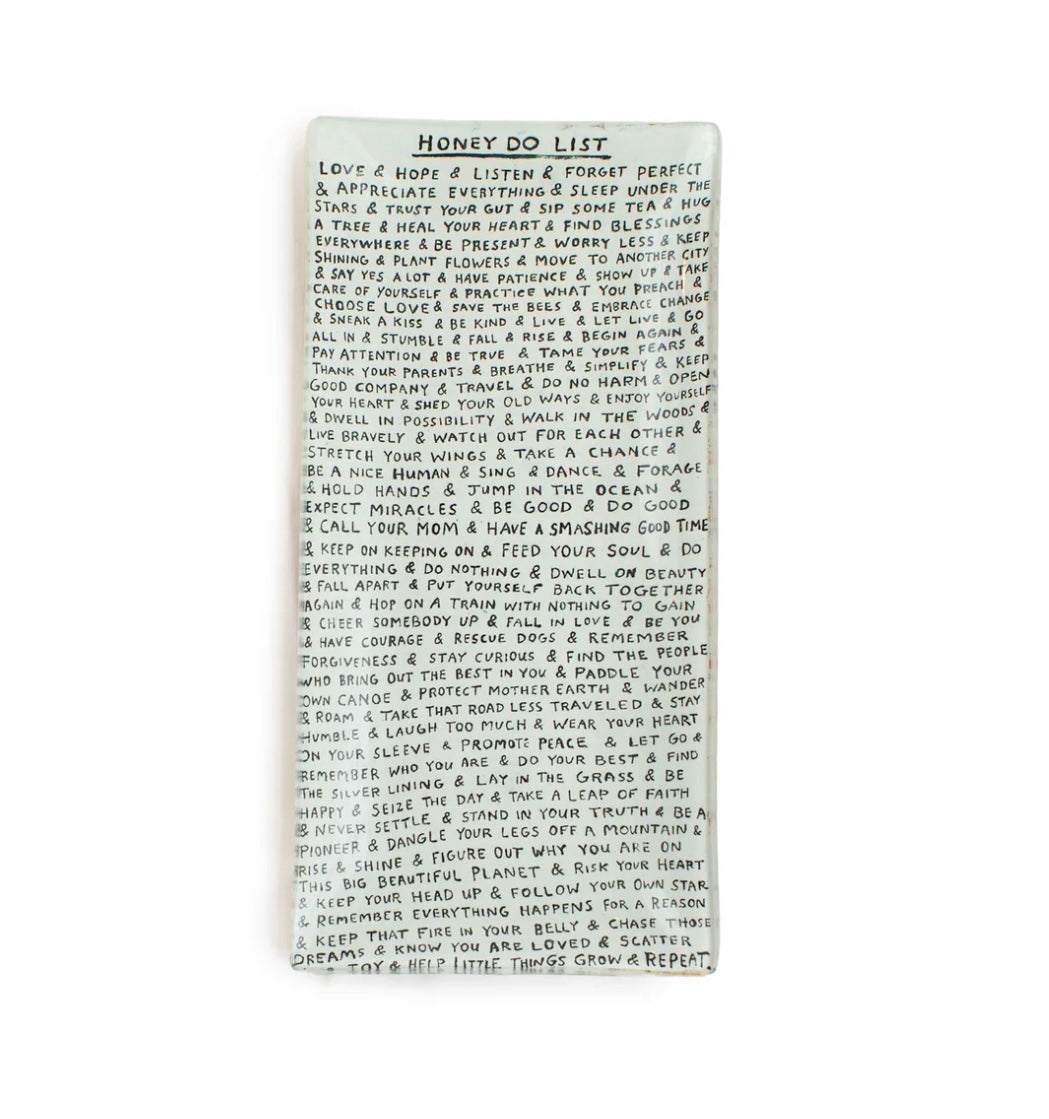 HONEY DO LIST
LOVE & HOPE & LISTEN & FORGET PERFECT
& APPRECIATE EVERYTHING & SLEEP UNDER THE
STARS & TRUST YOUR GUT & SIP SOME TEA & HUG
A TREE & HEAL YOUR HEART & FIND BLESSINGS
EVERYWHERE & BE PRESENT & WORRY LESS & KEEP
SHINING & PLANT FLOWERS & MOVE TO ANOTHER CITY
& SAY YES A LOT & HAVE PATIENCE & SHOW UP & TAKE
CARE OF YOURSELF & PRACTICE WHAT YOU PREACH &
CHOOSE LOVE & SAVE THE BEES & EMBRACE CHANGE
& SNEAK A KISS & BE KIND & LIVE & LET LIVE & GO
ALL IN & STUMBLE & FALL & RISE & BEGIN AGAIN &
PAY ATTENTION & BE TRUE & TAME YOUR FEARS &
THANK YOUR PARENTS & BREATHE & SIMPLIFY & KEEP
GOOD COMPANY & TRAVEL & DO NO HARM & OPEN
YOUR HEART & SHED YOUR OLD WAYS & ENJOY YOURSELF
& DWELL IN POSSIBILITY & WALK IN THE WOODS &
LIVE BRAVELY & WATCH OUT FOR EACH OTHER &
STRETCH YOUR WINGS & TAKE A CHANCE &
BE A NICE HUMAN & SING & DANCE & FORAGE
& HOLD HANDS & JUMP IN THE OCEAN &
EXPECT MIRACLES & BE GOOD & DO GOOD
& CALL YOUR MOM & HAVE A SMASHING GOOD TIME
& KEEP ON KEEPING ON & FEED YOUR SOUL & DO
EVERYTHING & DO NOTHING & DWELL ON BEAUTY
& FALL APART & PUT YOURSELF BACK TOGETHER
AGAIN & HOP ON A TRAIN WITH NOTHING TO GAIN
& CHEER SOMEBODY UP & FALL IN LOVE & BE YOU
& HAVE COURAGE & RESCUE DOGS & REMEMBER
FORGIVENESS & STAY CURIOUS & FIND THE PEOPLE
WHO BRING OUT THE BEST IN YOU & PADDLE YOUR
OWN CANOE & PROTECT MOTHER EARTH & WANDER
& ROAM & TAKE THAT ROAD LESS TRAVELED & STAY
HUMBLE & LAUGH TOO MUCH & WEAR YOUR HEART
ON YOUR SLEEVE & PROMOTE PEACE & LET GO &
REMEMBER WHO YOU ARE & DO YOUR BEST & FIND
THE SILVER LINING & LAY IN THE GRASS & BE
HAPPY & SEIZE THE DAY & TAKE A LEAP OF FAITH
& NEVER SETTLE & STAND IN YOUR TRUTH & BE A
PIONEER & DANGLE YOUR LEGS OFF A MOUNTAIN &
RISE & SHINE & FIGURE OUT WHY YOU ARE ON
THIS BIG BEAUTIFUL PLANET & RISK YOUR HEART
& KEEP YOUR HEAD UP & FOLLOW YOUR OWN STAR
& REMEMBER EVERYTHING HAPPENS FOR A REASON
& KEEP THAT FIRE IN YOUR BELLY & CHASE THOSE
DREAMS & KNOW YOU ARE LOVED & SCATTER
& HELP LITTLE THINGS GROW & REPEAT.